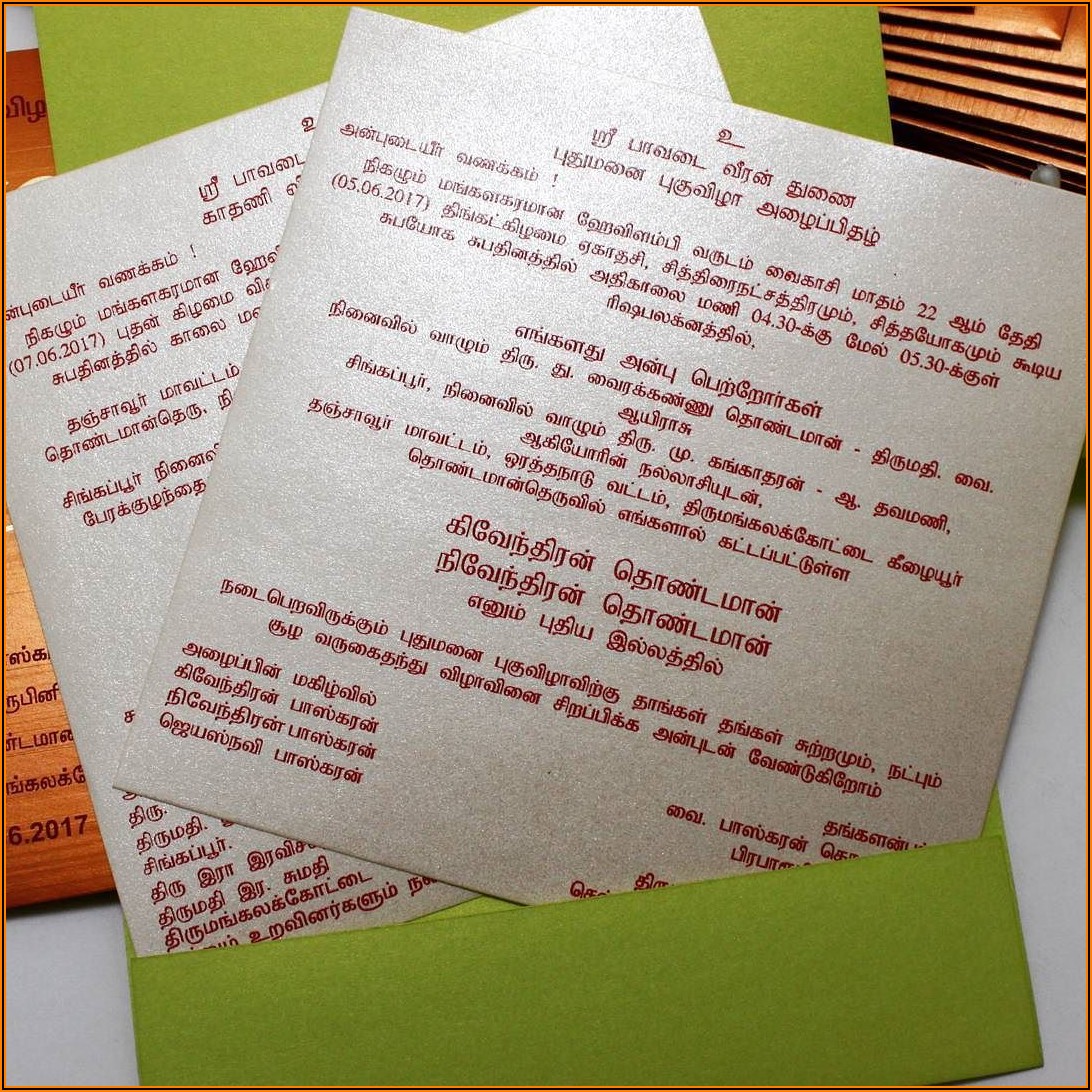 உ
ஸ்ரீ பாவடை வீரன் துணை
புதுமனை புகுவிழா அழைப்பிதழ்
அன்புடையீர் வணக்கம் !
நிகழும் மங்களகரமான ஹேவிளம்பி வருடம் வைகாசி மாதம் 22 ஆம் தேதி
(05.06.2017) திங்கட்கிழமை ஏகாதசி, சித்திரைநட்சத்திரமும், சித்தயோகமும் கூடிய
சுபயோக சுபதினத்தில் அதிகாலை மணி 04.30-க்கு மேல் 05.30-க்குள்
ரிஷபலக்னத்தில்,
எங்களது அன்பு பெற்றோர்கள்
நினைவில் வாழும் திரு. து. வைரக்கண்ணு தொண்டமான் - திருமதி. வை.
ஆயிராசு
சிங்கப்பூர், நினைவில் வாழும் திரு. மு. கங்காதரன் - ஆ. தவமணி,
ஆகியோரின் நல்லாசியுடன்,
தஞ்சாவூர் மாவட்டம், ஒரத்தநாடு வட்டம், திருமங்கலக்கோட்டை கீழையூர்
தொண்டமான்தெருவில் எங்களால் கட்டப்பட்டுள்ள
கிவேந்திரன் தொண்டமான்
நிவேந்திரன் தொண்டமான்
எனும் புதிய இல்லத்தில்
நடைபெறவிருக்கும் புதுமனை புகுவிழாவிற்கு தாங்கள் தங்கள் சுற்றமும், நட்பும்
சூழ வருகைதந்து விழாவினை சிறப்பிக்க அன்புடன் வேண்டுகிறோம்
அழைப்பின் மகிழ்வில்
கிவேந்திரன் பாஸ்கரன்
நிவேந்திரன் பாஸ்கரன்
ஜெயஸ்நவி பாஸ்கரன்
வை. பாஸ்கரன்
உ
ஸ்ரீ பாவடை
காதணி
வணக்கம் !
நிகழும் மங்களகரமான
(07.06.2017) புதன் கிழமை
சுபதினத்தில் காலை
தஞ்சாவூர் மாவட்டம்
தொண்டமான்தெரு,
சிங்கப்பூர்
பேரக்குழந்தை
திரு.
திருமதி.
சிங்கப்பூர்.
திரு இரா
திருமதி இர. சுமதி
திருமங்கலக்கோட்டை
உறவினர்களும்
6.2017